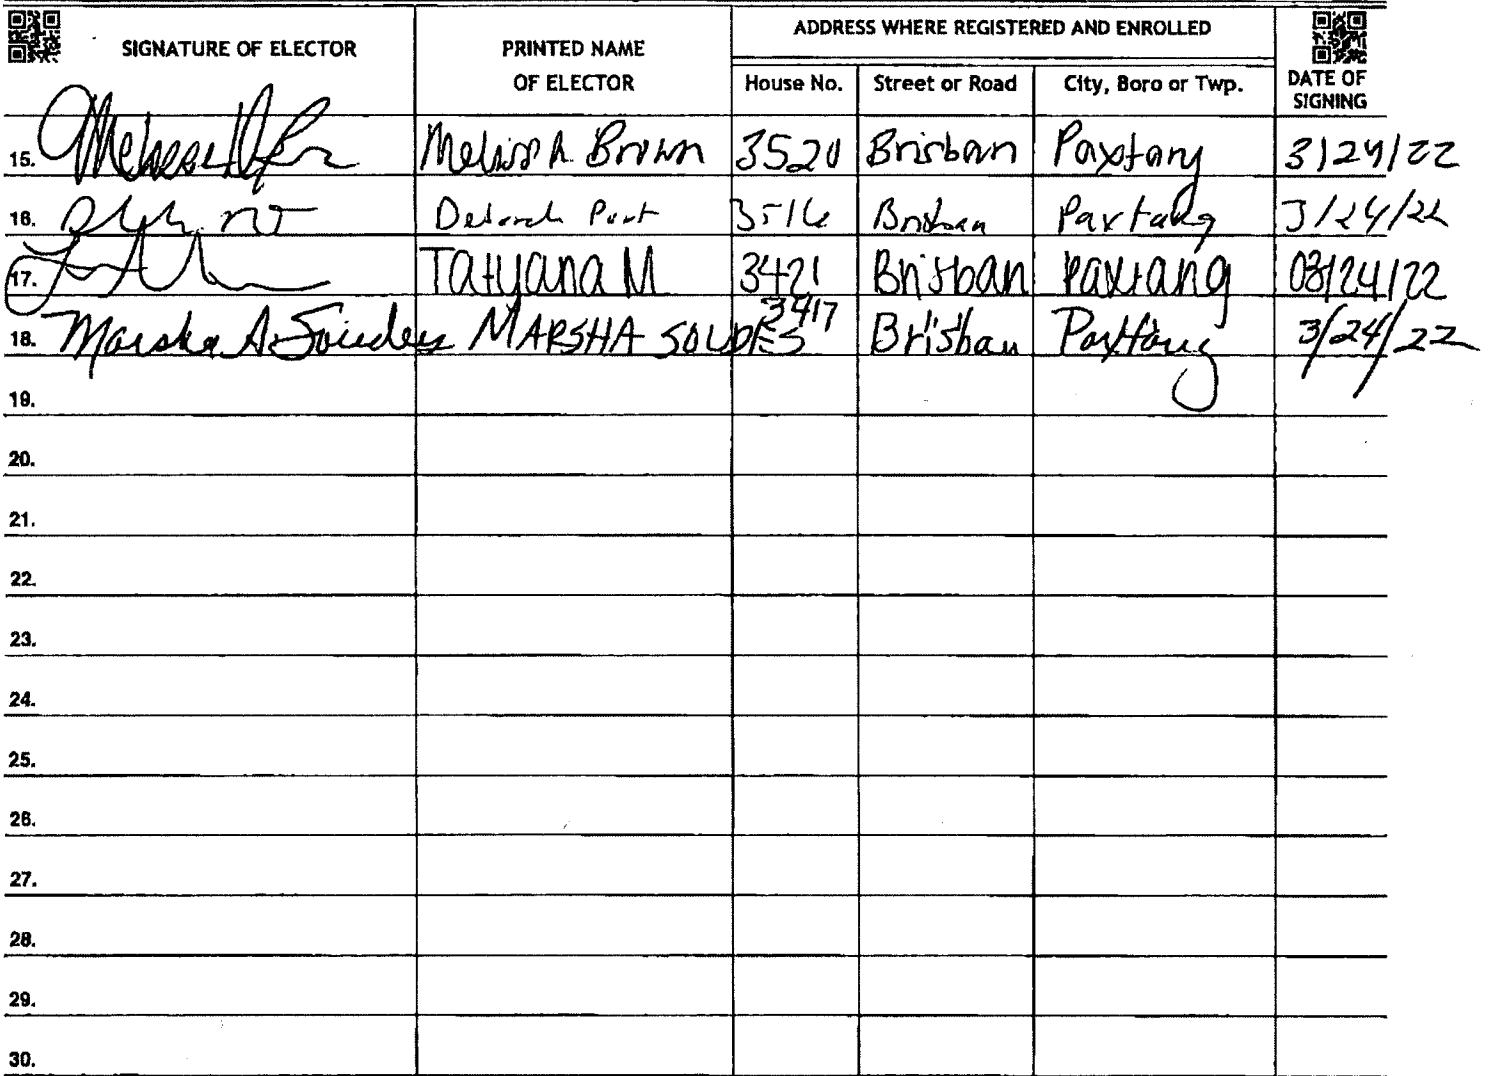 ADDRESS WHERE REGISTERED AND ENROLLED
SIGNATURE OF ELECTOR PRINTED NAME OF ELECTOR House No. Street or Road City, Boro or Twp. DATE OF SIGNING
15. Melissa A Brown 3520 Brisban Paxtang 3/24/22
16. Deborah 3516 Brisban Paxtang 3/24/22
17. Tatyana M 3421 Brisban Paxtang 03/24/22
18. Marsha A. Souders MARSHA SOUDES 3417 Brisban Paxtang 3/24/22
19.
20.
21.
22.
23.
24.
25.
26.
27.
28.
29.
30.